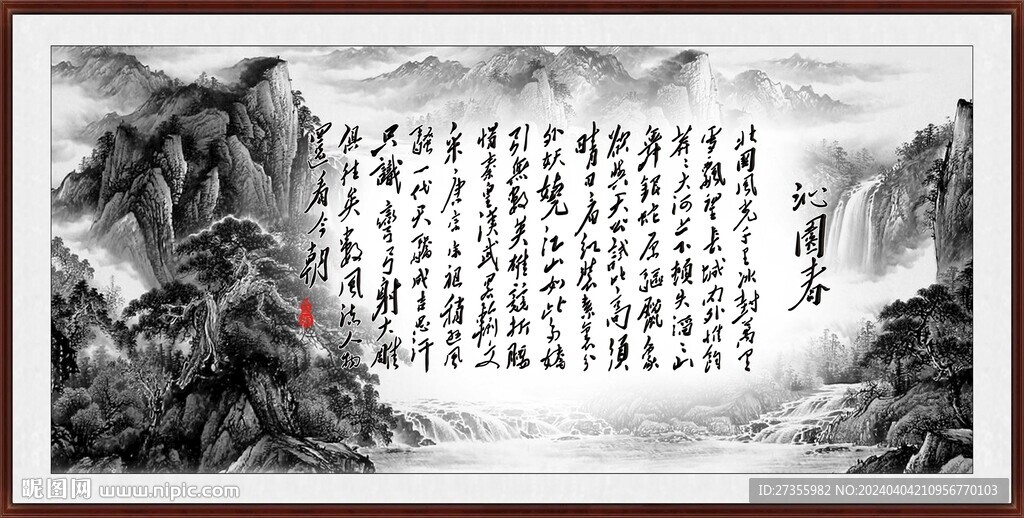 沁園春
北國風光千里冰封萬里
雪飄望長城內外惟餘
莽〻大河上下頓失滔〻山
舞銀蛇原馳蠟象
欲與天公試比高須
晴日看紅裝素裹分
外妖嬈江山如此多嬌
引無數英雄競折腰
惜秦皇漢武略輸文
采唐宗宋祖稍遜風
騷一代天驕成吉思汗
只識彎弓射大雕
俱往矣數風流人物
還看今朝
昵图网 www.nipic.com
ID:27355982 NO:20240404210956770103